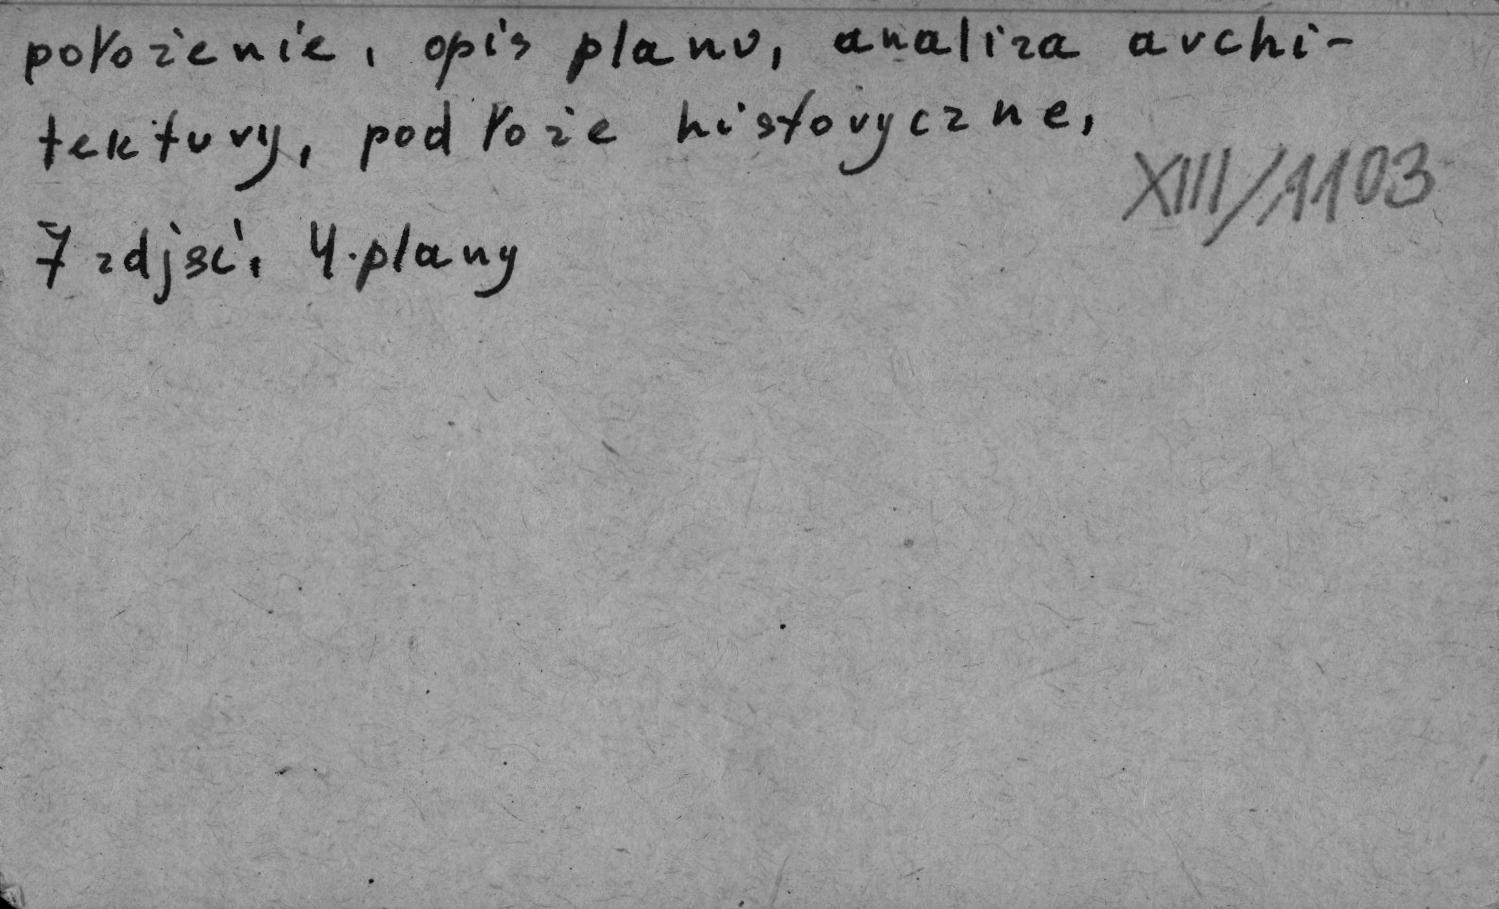 położenie, opis planu, analiza archi-
tektury, podłoże historyczne,
XIII/1103
7 zdjęć, 4 plany